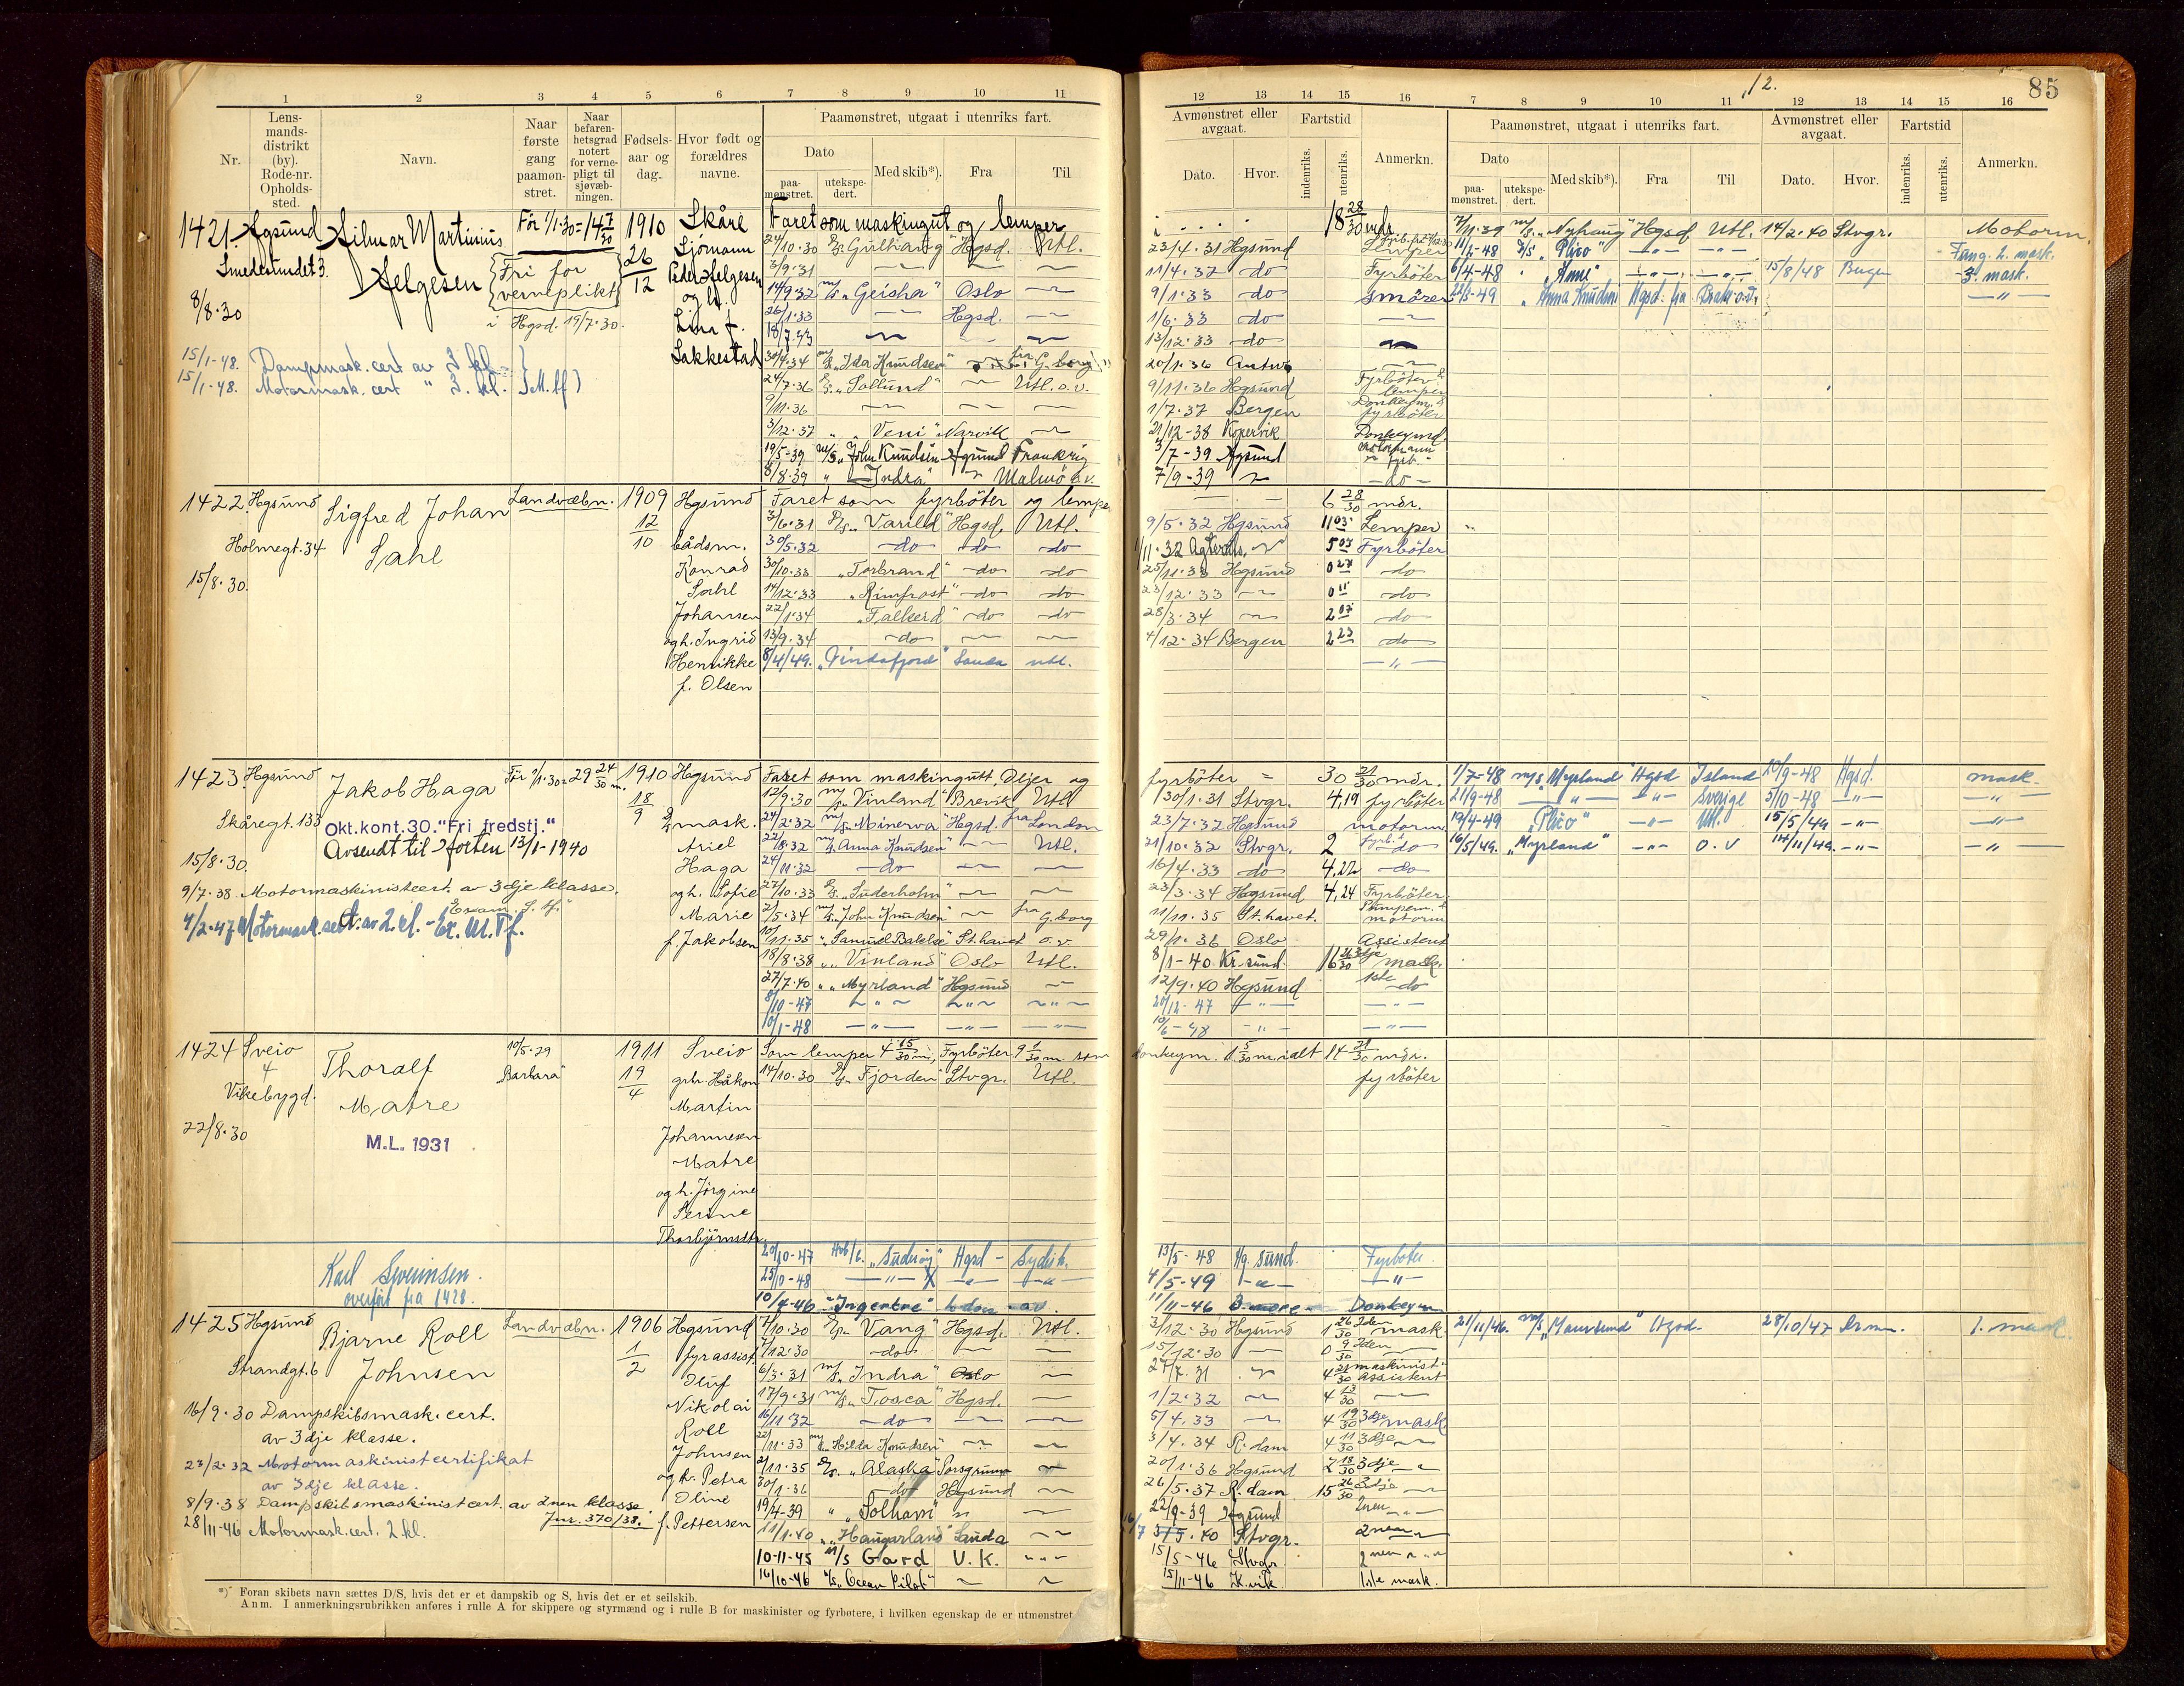 85
12.
1 2 3 4 5 6 7 8 9 10 11
Nr.
Lens-
mands-
distrikt
(by).
Rode-nr.
Opholds-
sted.
Navn.
Naar
første
gang
paamøn-
stret.
Naar
befaren-
hetsgrad
notert
for verne-
pligt til
sjøvæb-
ningen.
Fødsels-
aar og
dag.
Hvor født og
forældres
navne.
Paamønstret, utgaat i utenriks fart.
Dato
paa-
mønstret.
utekspe-
dert.
Med skib*).
Fra
Til
12 13 14 15 16 7 8 9 10 11 12 13 14 15 16
Avmønstret eller
avgaat.
Dato.
Hvor.
Fartstid
indenriks.
utenriks.
Anmerkn.
Paamønstret, utgaat i utenriks fart.
Dato
paa-
mønstret.
utekspe-
dert.
Med skib*).
Fra
Til
Avmønstret eller
avgaat.
Dato.
Hvor.
Fartstid
indenriks.
utenriks.
Anmerkn.
1421. Hgsund
Smedesundet 3.
8/8.30
Hilmar Martinius
Helgesen
Før 1/1.30 = 14 7/30
Fri for
verneplikt
i Hgsd. 19/7.30.
1910
26/12
Skåre
Sjömann
Peder Helgesen
og h.
Lina f.
Sakkestad
15/1-48. Dampmask.cert av 3 kl.
15/1-48. Motormask.cert " 3. kl.
Faret som maskingut og lemper
18 28/30 mdr.
24/10.30 D/S "Gulhaug" Hgsd. Utl. 23/4.31 Hgsund
3/9.31 11/4.32 do Fyrböter
14/9.32 m/s "Geisha" Oslo 9/1.33 do smörer
26/1.33 Hgsd. 1/6.33 do
18/7.33 13/12.33 do
30/4.34 m/s "Ida Knudsen" fra G.borg 20/1.36 Antw.
24/7.36 D/S "Sollund" Utl. o.v. 9/11.36 Hgsund Fyrböter & lemper
9/11.36 1/7.37 Bergen Donkeym. & fyrböter
3/12.37 " "Veni" Narvik 21/12-38 Kopervik Donkeymd.
19/5-39 m/s "John Knudsen" Hgsund Frankrig 3/7-39 Hgsund motormann
8/8.39 " "Indra" Malmö o.v. 7/9-39 do
7/11.39 m/s "Nyhaug" Hgsd Utl. 14/2.40 Stvgr. Motorm.
11/2-48 D/S "Plico" Fung. 2. mask.
6/4-48 "Anne" 15/8/48 3. mask.
22/3-49 "Anna Knudsen" Hgsd. fra
1422. Hgsund
Holmegt. 34
15/8.30.
Sigfred Johan
Sahl
Landvæbn.
1909
12/10
Hgsund
bådsm.
Konrad
Sahl
Johansen
og h. Ingrid
Henrikke
f. Olsen
Faret som fyrböter og lemper
6 28/30 mdr.
3/6.31 D/S "Varild" Hgsd. Utl. 9/5.32 Hgsund 11 03 Lemper
30/5.32 do do do 11/11.32 5 03 Fyrböter
30/10.33 "Torbrand" do do 25/11.33 Hgsund 0 27 do
14/12.33 "Rimfrost" do do 23/12.33 0 11 do
22/1.34 "Falkerd" do do 28/3.34 2 07 do
13/9.34 do 4/12.34 Bergen 2 23 do
8/4/49. "Vindafjord" Sauda utl.
1423. Hgsund
Skåregt. 133
15/8.30.
Jakob Haga
Okt.kont.30."Fri fredstj."
Avsendt til Horten 13/1-1940
Før 1/1.30 = 29 24/30 m.
1910
18/9
Hgsund
mask.
Ariel
Haga
og h. Sofie
Marie
f. Jakobsen
9/7.38. Motormaskinistcert. av 3dje klasse.
4/2.47 Motormask.sert. av 2. kl. - Ex.
Faret som maskingutt, Oljer og
fyrböter = 30 21/30 mdr.
12/9.30 m/s "Vinland" Brevik Utl 30/1.31 Stvgr. 4,19 fyrböter
24/2.32 m/s "Minerva" Hgsd. fra London 23/7.32 Hgsund motorm.
22/8.32 m/s "Anna Knudsen" Utl. 21/10.32 Stvgr. 2 do
24/11.32 do 16/4.33 do 4,22 do
27/10.33 D/S "Suderholm" 23/3.34 Hgsund 4,24 Fyrböter
2/5.34 m/s "John Knudsen" fra G.borg 11/11.35 St.havet. Pumpem. & motorm
10/11.35 " "Samuel Bakke" St.havet o.v. 29/1.36 Oslo Assistent
18/8.38 " "Vinland" Oslo Utl. 8/1-40 Kr.sund. 3dje mask.
27/7.40 " "Myrland" Hgsund 12/9.40 Hgsund 1ste do
8/10-47 20/12-47
10/1-48 10/6-48
1/7-48 m/s "Myrland" Hgsd Island 10/9-48 Hgsd. mask.
21/9-48 Sverige 5/10-48
19/4-49 "Plico" Utl. 15/5/49
16/5/49. "Myrland" o.v 14/11/49.
1424 Sveio
4
Vikebygd.
22/8.30
Thoralf
Matre
M.L. 1931
10/5.29
"Barbara"
1911
19/4
Sveio
grbr. Håkon
Martin
Johannesen
Matre
og h. Jörgine
Serine
Thorbjörnsdtr.
Som lemper 4 15/30 m, Fyrböter 9 1/30 m. som
donkeym. 1 5/30 m. ialt 14 21/30 mdr.
14/10.30 D/S "Fjorden" Stvgr. Utl. fyrböter
Karl Sveinsen.
overført fra 1428.
20/10-47 "Suderöy" Hgsd - Sydish. 13/5-48 Hg.sund. Fyrböter
25/10-48 4/5-49
10/4-46 "Ingertre" 11/11-46 Donkeym
1425 Hgsund
Strandgt. 6
Bjarne Roll
Johnsen
Landvæbn.
1906
1/2
Hgsund
fyrassist.
Oluf
Nikolai
Roll
Johnsen
og h. Petra
Oline
f. Pettersen
16/9.30 Dampskibsmask.cert.
av 3dje klasse.
23/2.32 Motormaskinistcertifikat
av 3dje klasse.
8/9.38 Dampskibsmaskinistcert. av 2nen klasse
Jnr. 370/38.
28/11-46 Motormask.cert. 2 kl.
7/10.30 D/S "Vang" Hgsd. Utl. 3/12.30 Hgsund 1 26/30 2den mask.
7/12.30 do 15/12.30 0 9/30 2den
6/3.31 m/s "Indra" Oslo 27/7.31 4 21/30 maskinist-assistent
17/9.31 m/s "Tosca" Hgsd. 1/2.32 4 13/30
16/11.32 do 5/4.33 4 19/30 3dje mask
22/11.33 m/s "Hilda Knudsen" 3/4.34 R.dam 4 11/30 3dje
2/11.35 D/S "Alaska" Porsgrunn 20/1.36 Hgsund 2 18/30 3dje
30/1.36 do Hgsund 26/5.37 R.dam 15 26/30 3dje
19/4-39 " "Solhavn" 22/9-39 Hgsund 2nen
11/1.40 " "Haugarland" Sauda Stvgr. 2nen
10-11-45 M/S Gard U.K. 15/5-46 Stvgr. 2nen
16/10-46 "Ocean Pilot" 15/11-46 K.vik 1ste mask.
21/11/46. m/s "Maursund" Hgsd. 28/10/47 1. mask
*) Foran skibets navn sættes D/S, hvis det er et dampskib og S, hvis det er et seilskib.
Anm. I anmerkningsrubrikken anføres i rulle A for skippere og styrmænd og i rulle B for maskinister og fyrbøtere, i hvilken egenskap de er utmønstret